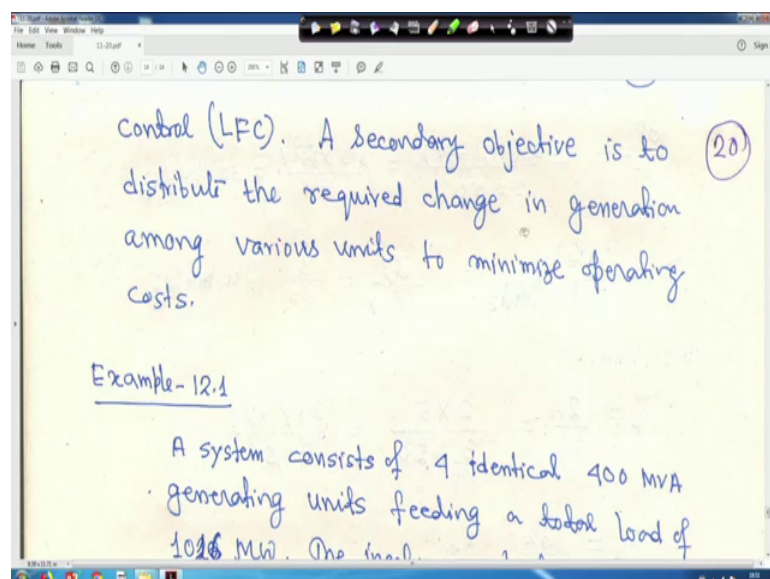 11-20.pdf - Adobe Acrobat Reader DC
File Edit View Window Help
Home Tools 11-20.pdf × Sign
14 / 14 200%
control (LFC). A secondary objective is to
20
distribute the required change in generation
among various units to minimize operating
costs.
Example-12.1
A system consists of 4 identical 400 MVA
generating units feeding a total load of
MW. The